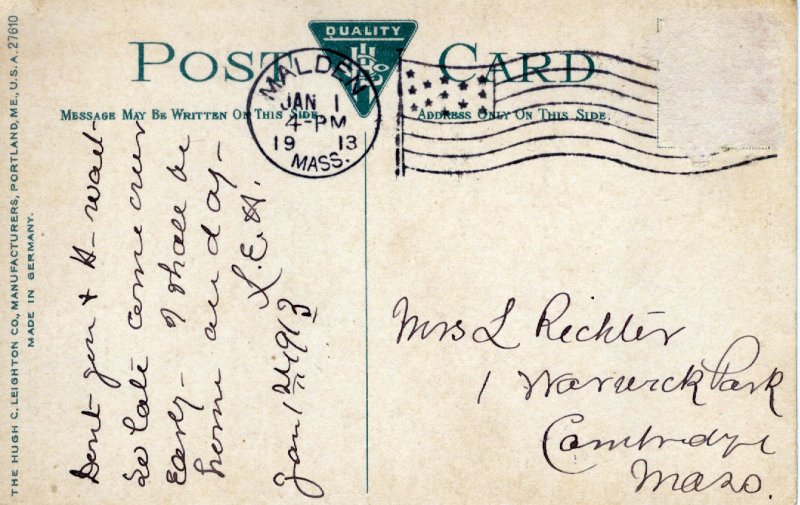 QUALITY
POST CARD
MESSAGE MAY BE WRITTEN ON THIS SIDE
ADDRESS ONLY ON THIS SIDE.
MALDEN
JAN 1
4-PM
19 13
MASS.
THE HUGH C. LEIGHTON CO., MANUFACTURERS, PORTLAND, ME., U.S.A. 27610
MADE IN GERMANY.
Dont you + H- wait
so late come over
Early- I shall be
home all day-
L. E. H.
Jan 1 1913
Mrs L Richter
1 Warwick Park
Cambridge
Mass.